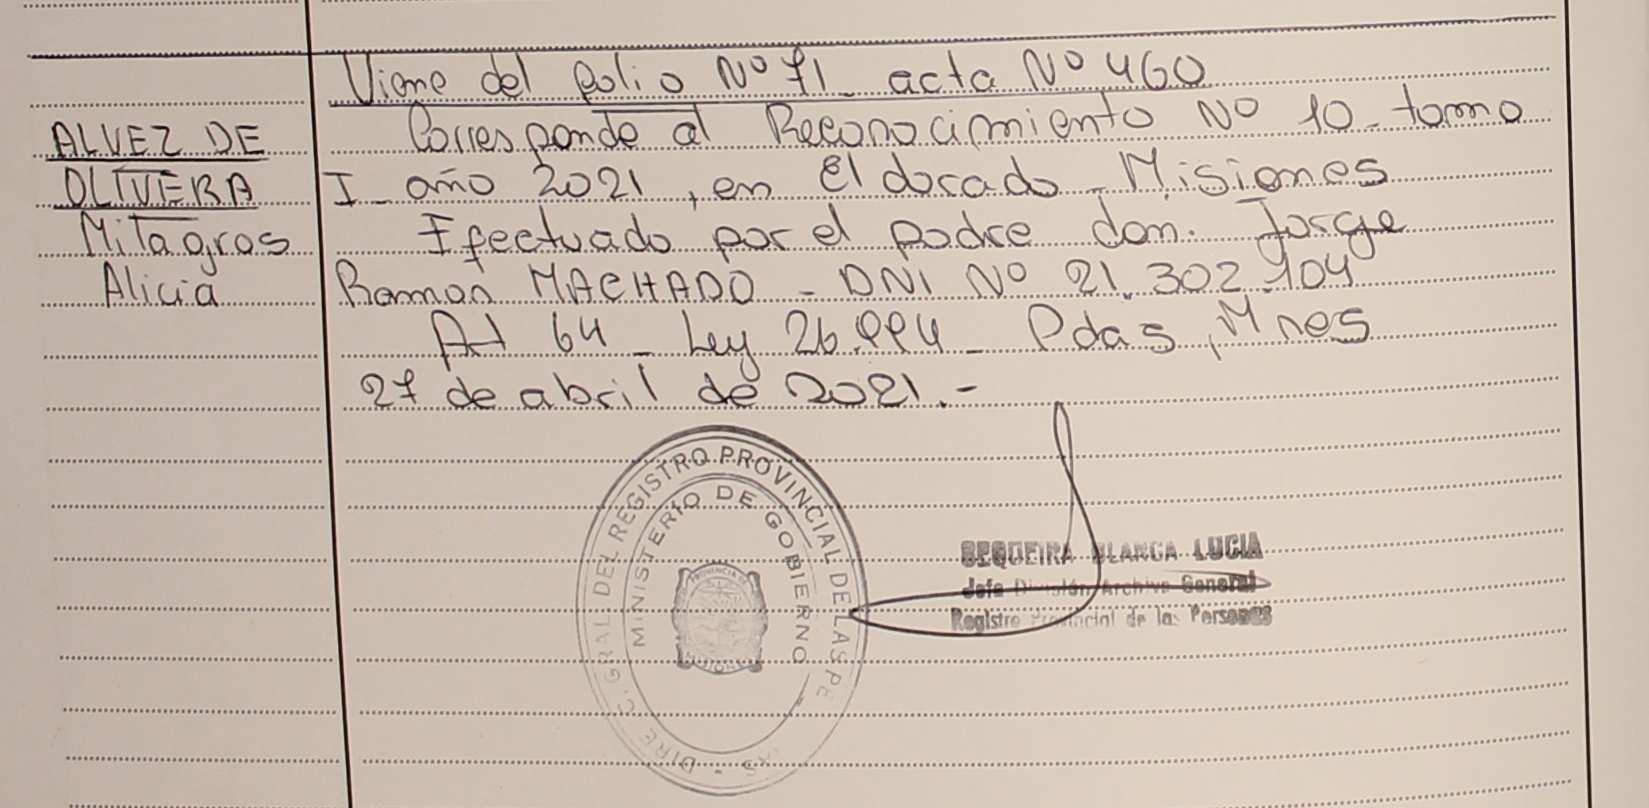 Viene del folio Nº 71_ acta Nº 460
ALVEZ DE
OLIVERA
Milagros
Alicia
Corresponde al Reconocimiento Nº 10_ tomo
I_ año 2021, en Eldorado_ Misiones
Efectuado por el padre don. Jorge
Ramón MACHADO - DNI Nº 21.302.104
Art 64_ Ley 26.994_ Pdas, Mnes
27 de abril de 2021.-
DIREC. GRAL. DEL REGISTRO PROVINCIAL DE LAS PE AS -
MINISTERIO DE GOBIERNO
PROVINCIA DE
MISIONES
SEQUEIRA BLANCA LUCIA
Jefe División Archivo General
Registro Provincial de las Personas